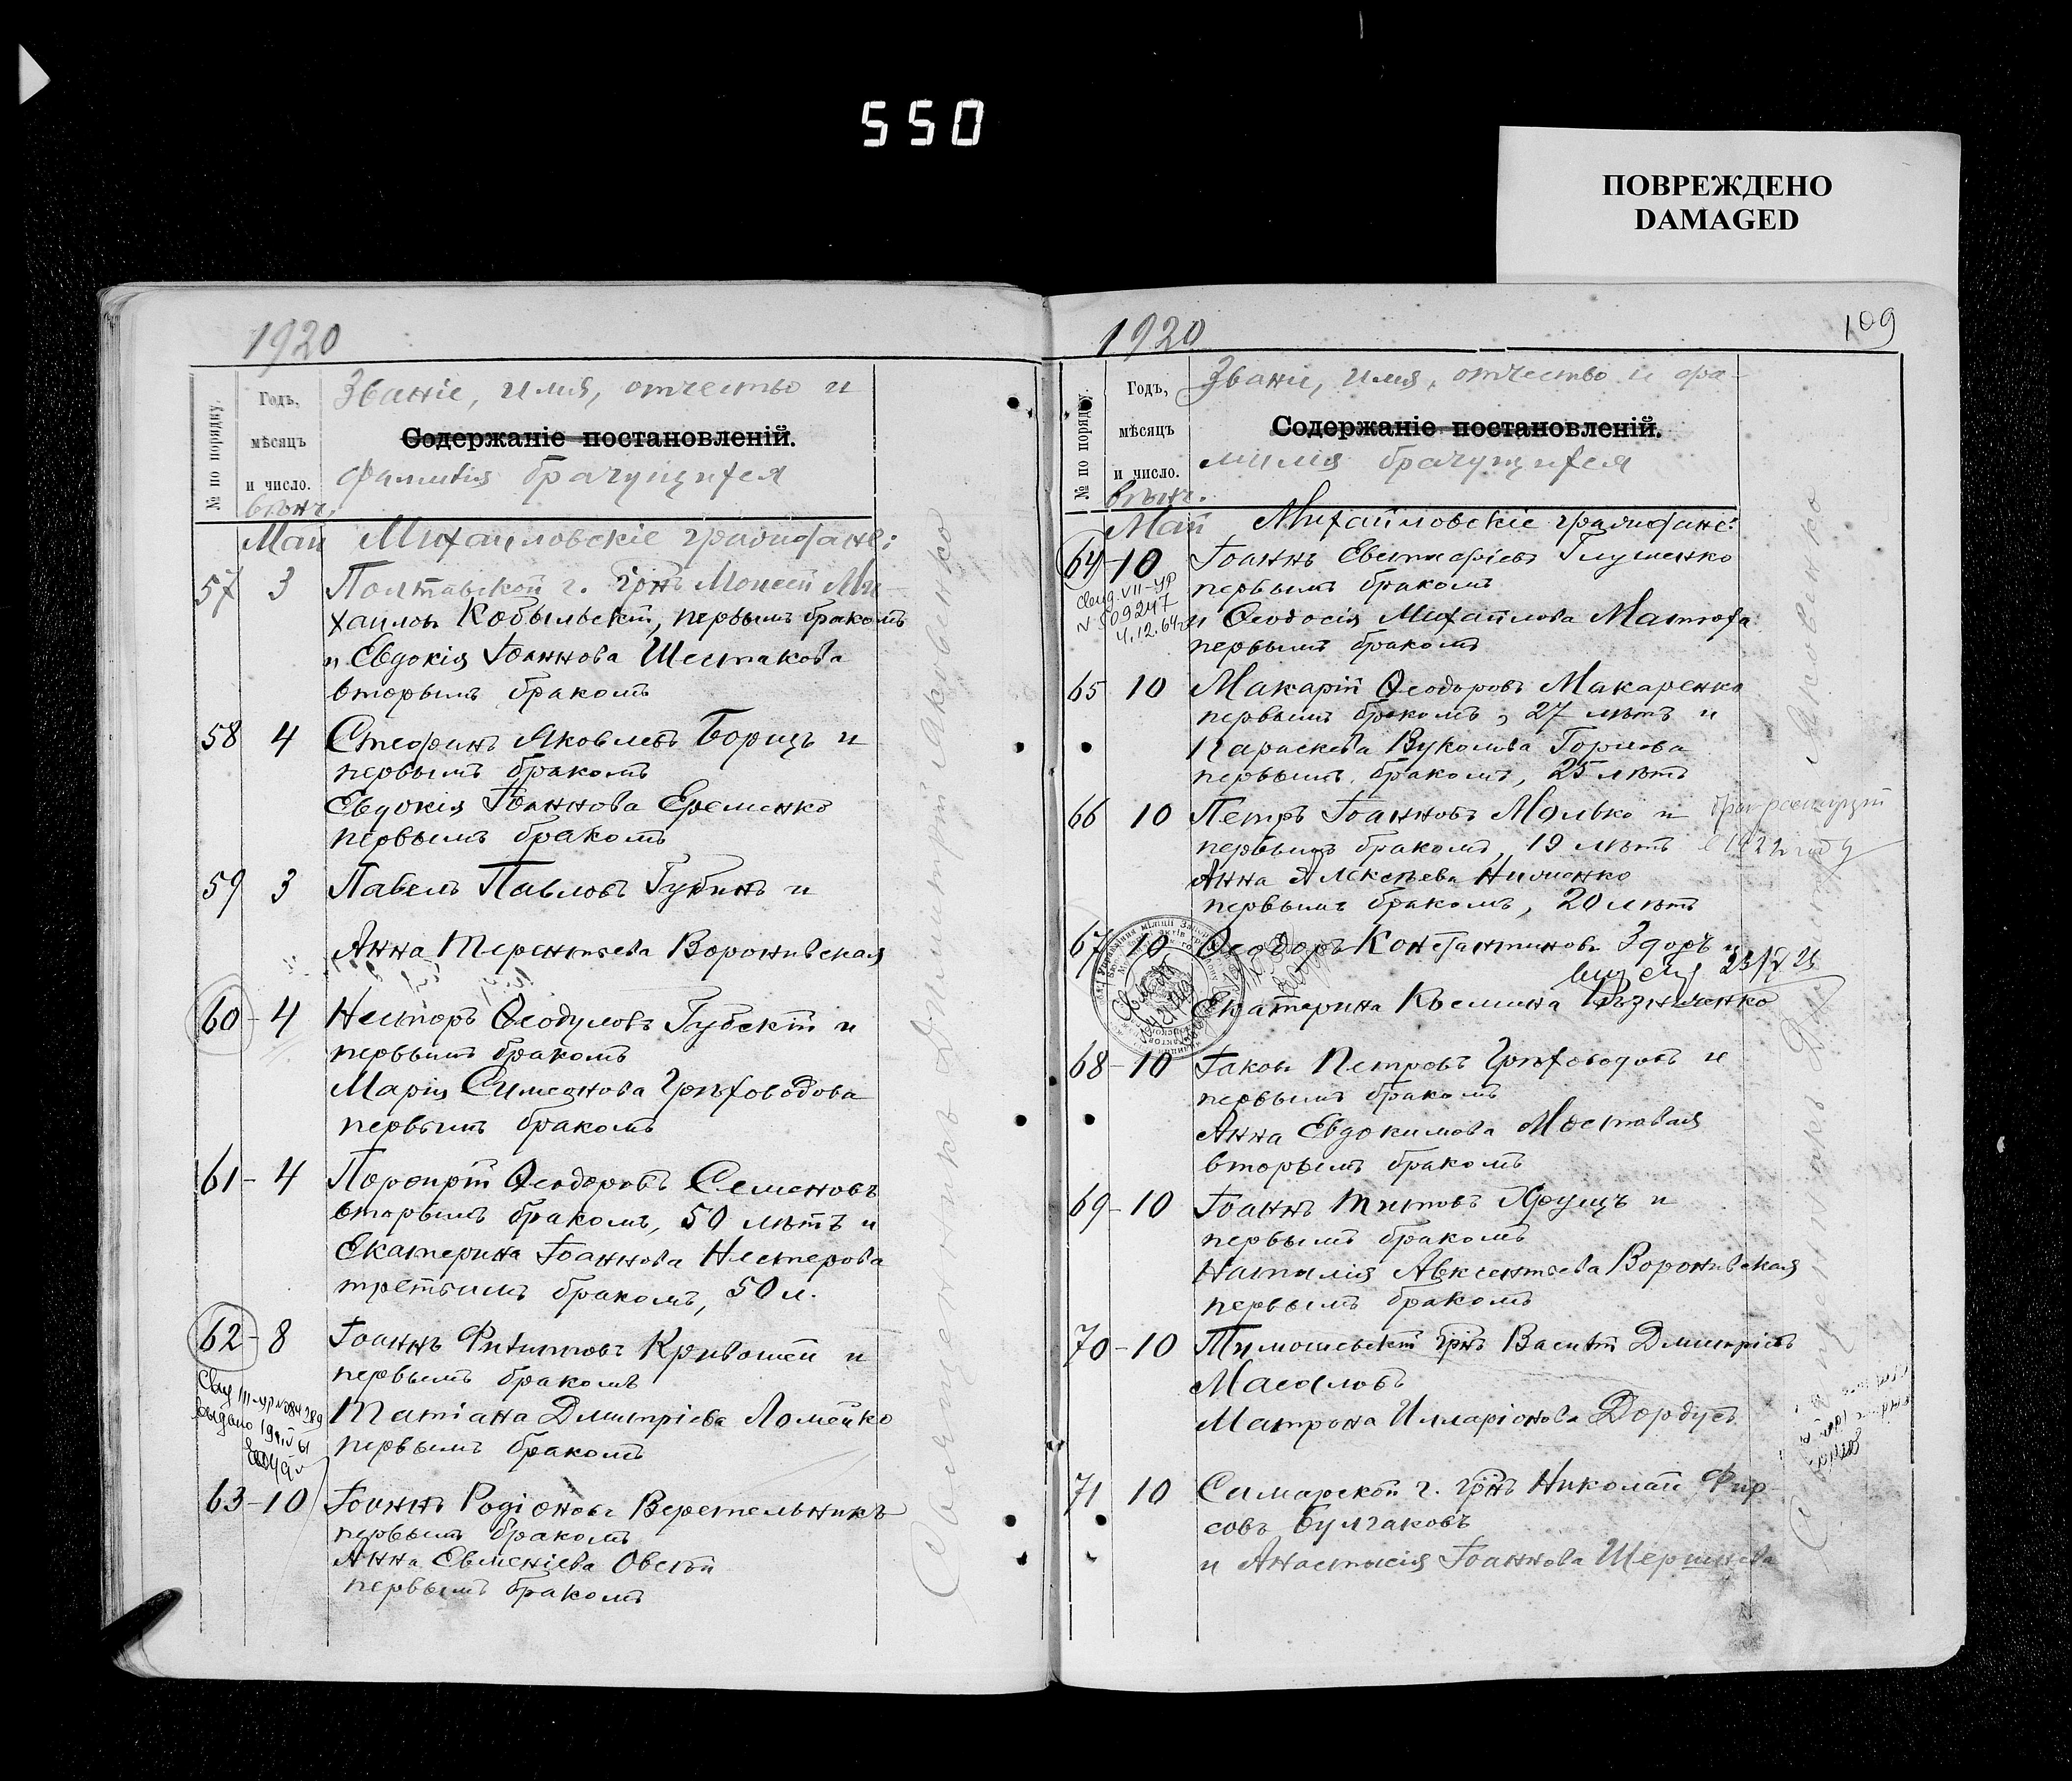 550
ПОВРЕЖДЕНО
DAMAGED
1920
№ по порядку.
Годъ,
мѣсяцъ
и число.
вѣнч.
Званіе, имя, отчество и
Содержаніе постановленій.
фамилія брачущихся
Май Михайловскіе граждане:
57 3 Полтавской г. грнъ Моисей Ми-
хаиловъ Кобыльскій, первымъ бракомъ
и Евдокія Іоаннова Шестакова
вторымъ бракомъ
58 4 Стефанъ Яковлевъ Борицъ и
первымъ бракомъ
Евдокія Іоаннова Еременко
первымъ бракомъ
59 3 Павелъ Павловъ Губинъ и
Анна Терентьева Воронивская
60 - 4 Несторъ Ѳеодуловъ Губскій и
первымъ бракомъ
Марія Симеонова Грѣховодова
первымъ бракомъ
61 - 4 Порфирій Ѳеодоровъ Семеновъ
вторымъ бракомъ, 50 лѣтъ и
Екатерина Іоаннова Нестерова
третьимъ бракомъ, 50 л.
62 - 8 Іоаннъ Филипповъ Кривошеи и
первымъ бракомъ
Татіана Дмитріева Ломейко
первымъ бракомъ
63 - 10 Іоаннъ Родіоновъ Веретельникъ
первымъ бракомъ
Анна Евменіева Овсій
первымъ бракомъ
Священникъ Димитрій Яковенко
1920
109
№ по порядку.
Годъ,
мѣсяцъ
и число.
вѣнч.
Званіе, имя, отчество и фа-
Содержаніе постановленій.
милія брачущихся
Май Михайловскіе граждане:
64 - 10 Іоаннъ Евстафіевъ Глущенко
первымъ бракомъ
и Ѳеодосія Михайлова Матюха
первымъ бракомъ
Свид. VII-УР
N 509247
4.12.64
65 10 Макарій Ѳеодоровъ Макаренко
первымъ бракомъ, 27 лѣтъ и
Параскева Вуколова Горлова
первымъ бракомъ, 25 лѣтъ
66 10 Петръ Іоанновъ Молько и
первымъ бракомъ, 19 лѣтъ
Анна Алексѣева Ничленко
первымъ бракомъ, 20 лѣтъ
67 10 Ѳеодоръ Константиновъ Здоръ и
Екатерина Козьмина
68 - 10 Іаковъ Петровъ Грѣховодовъ и
первымъ бракомъ
Анна Евдокимова Мостовая
вторымъ бракомъ
69 - 10 Іоаннъ Титовъ Хрущъ и
первымъ бракомъ
Наталія Авксентьева Воронивская
первымъ бракомъ
70 - 10 Тимошевскій грнъ Василій Дмитріевъ
Масаловъ
Матрона Илларіонова Дордусъ
71 10 Самарской г. грнъ Николай Фир-
совъ Булгаковъ
и Анастасія Іоаннова